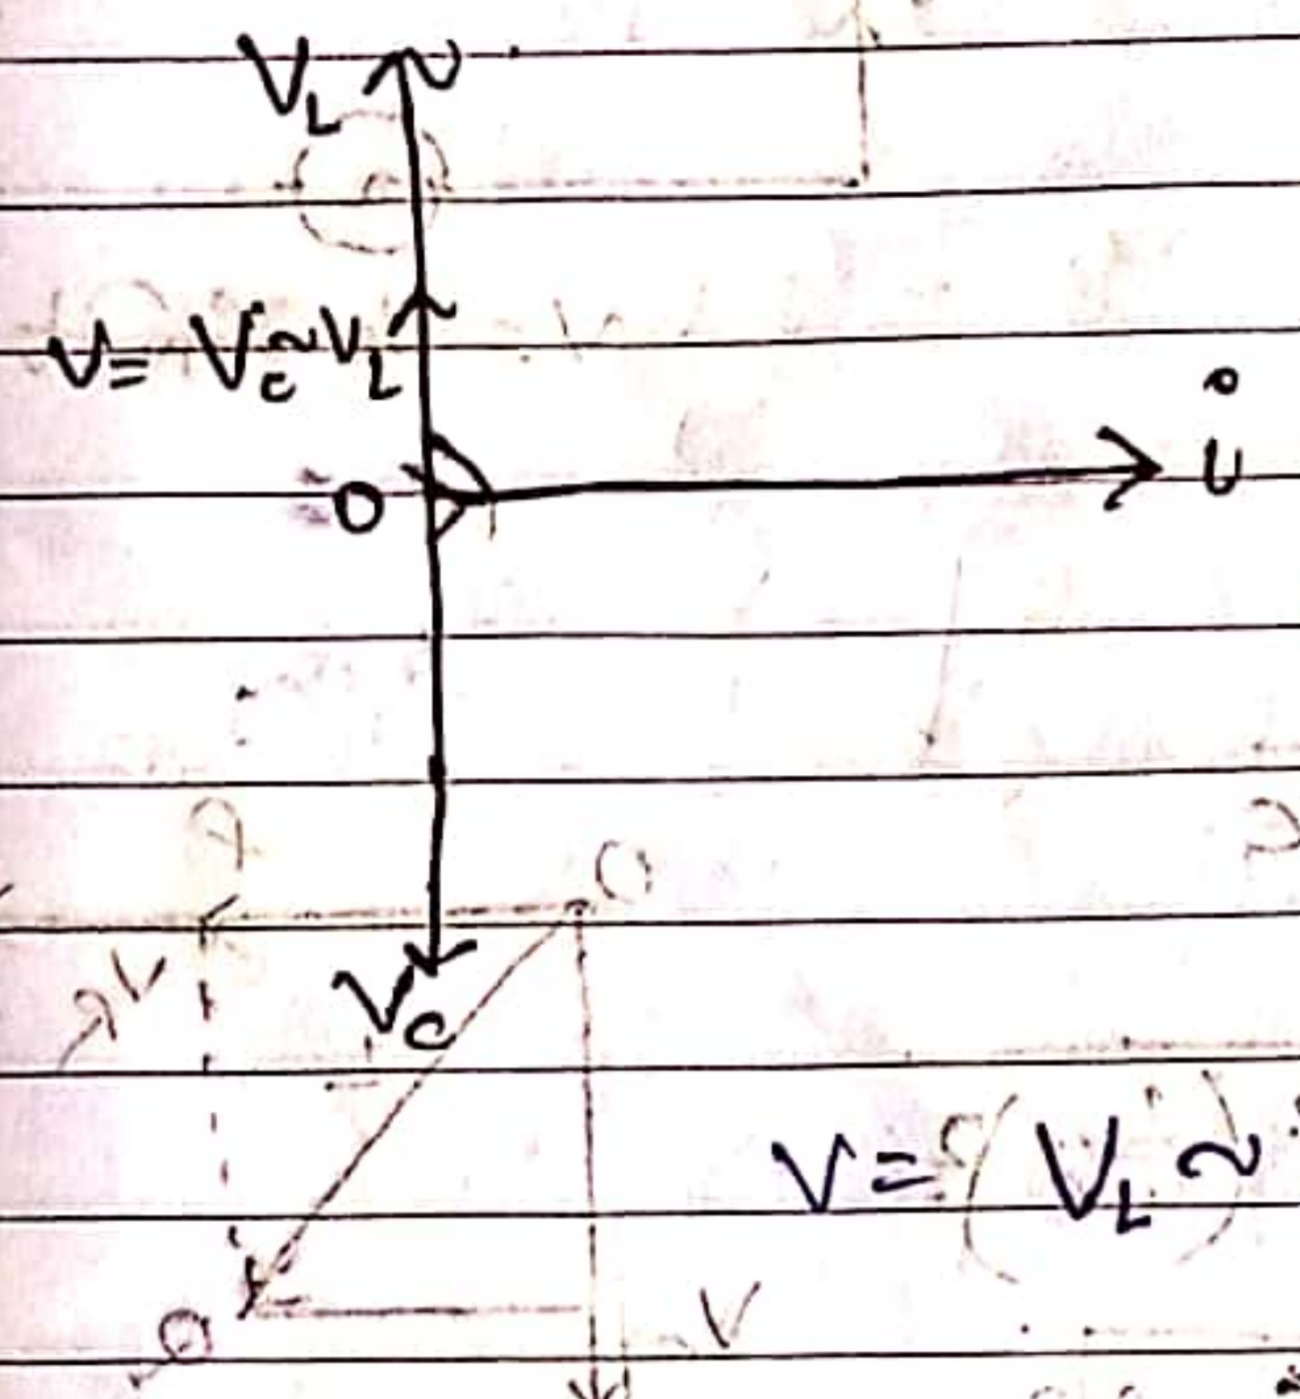 V_L
V = V_c ~ V_L
i
O
V_c
V = (V_L ~